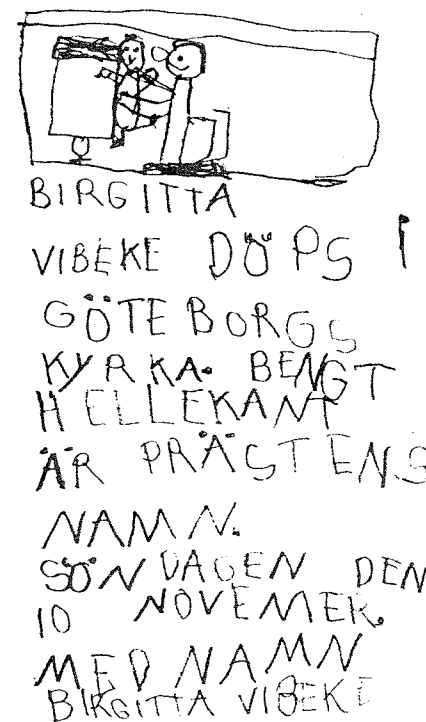 BIRGITTA
VIBEKE DÖPS i
GÖTEBORGS
KYRKA. BENGT
HELLEKANT
ÄR PRÄSTENS
NAMN.
SÖNDAGEN DEN
10 NOVEMER.
MED NAMN
BIRGITTA VIBEKE